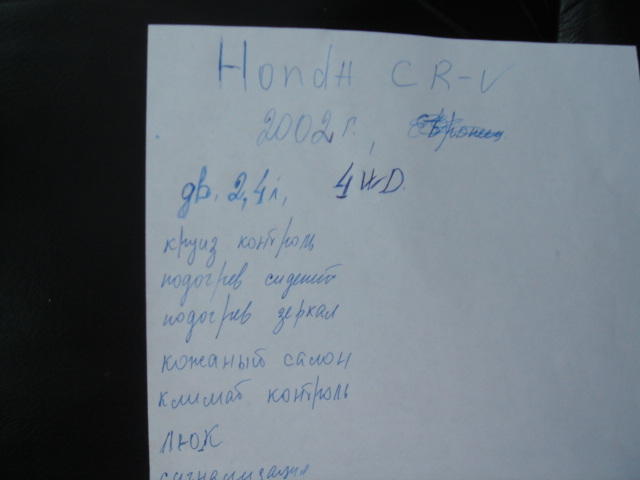 HondA CR-V
2002 г.,
дв. 2,4 i, 4WD.
круиз контроль
подогрев сидений
подогрев зеркал
кожаный салон
климат контроль
люк
сигнализация